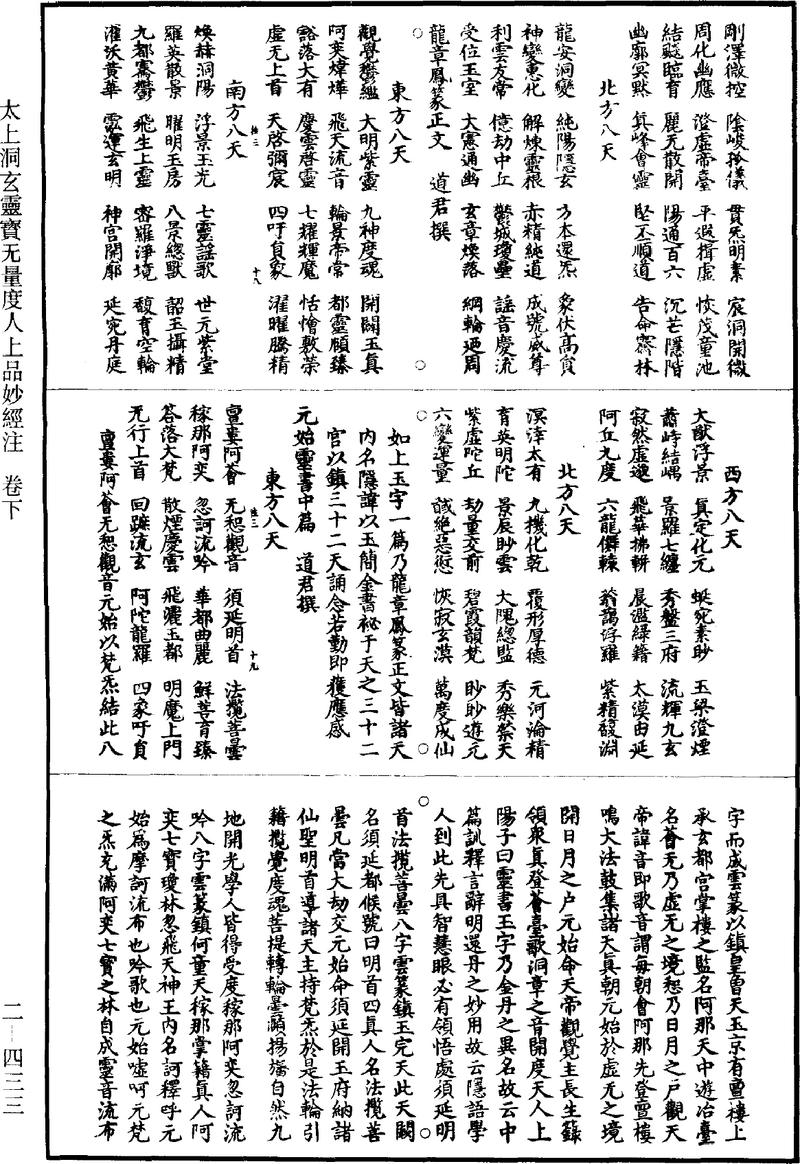 剛澤微控　陰峻掄儀　貫炁明素　宸洞開微
周化幽應　澄虛帝臺　平遐揖虛　恢茂童池
結飈臨育　麗无散開　陽通百六　沉芒隱階
幽廓冥默　莫峰會靈　堅丕順道　告命齋林
北方八天
龍安洞變　純陽隱玄　方本還炁　象伏高貟
神變惠化　解煉靈根　赤精純道　成號威尊
利雲友帝　億劫中丘　鬱城瓊壘　謠音慶流
受位玉室　大憲通幽　玄章煥落　綱輪迊周
龍章鳳篆正文　道君撰
東方八天
觀覺鬱繼　大明紫靈　九神度魂　開關玉真
阿奕煒燁　飛天流音　輪景帝常　都靈願臻
豁落大有　慶雲啓靈　七耀輝魔　恬憺敷榮
虛无上首　天啓彌宸　四吁負象　濯曜騰精
註三　十八
南方八天
煥赫洞陽　浮景玉光　七靈謠歌　世元紫堂
羅英散景　曜明玉房　八景緫獸　韶玉攝精
九都騫鬱　飛生上靈　審羅淨境　馥育空輪
灌沃黃華　靈運玄明　神宮開廓　延宛丹庭
西方八天
大猷浮景　真定化元　蜺宛素眇　玉梁澄煙
蕭峙結嵎　景羅七纏　秀盤三府　流輝九玄
寂然虛邈　飛華拂軿　晨濫綠籍　太漠由延
阿丘九度　六龍儛轅　蓊藹浮羅　紫精馥淵
北方八天
溟涬太有　九機化乾　覆形厚德　元河淪精
育英明陀　景辰眇雲　大隗緫監　秀樂禁天
紫虛陀丘　劫量交前　碧霞韻梵　眇眇遊元
六變運量　誠絕惡愆　恢寂玄漠　萬度成仙
如上玉字一篇乃龍章鳳篆正文皆諸天
內名隱諱以玉簡金書祕于天之三十二
宮以鎮三十二天誦念若動即獲應感
元始靈書中篇　道君撰
東方八天
註三　十九
亶婁阿薈　无惒觀音　須延明首　法攬菩曇
稼那阿奕　忽訶流吟　華都曲麗　鮮菩育臻
答落大梵　散煙慶雲　飛灑玉都　明魔上門
无行上首　回蹠流玄　阿陀龍羅　四象吁負
亶婁阿薈无惒觀音元始以梵炁結此八
字而成雲篆以鎮皇曾天玉京有亶樓上
承玄都宮掌樓之監名阿那天中遊冶臺
名薈无乃虛无之境惒乃日月之戶觀天
帝諱音即歌音謂每朝會阿那先登亶樓
鳴大法鼓集諸天真朝元始於虛无之境
開日月之戶元始命天帝觀覺主長生籙
領衆真登薈臺歌洞章之音開度天人上
陽子曰靈書玉字乃金丹之異名故云中
篇訓釋言辭明還丹之妙用故云隱語學
人到此先具智慧眼必有領悟處須延明
首法攬菩曇八字雲篆鎮玉完天此天闕
名須延都候號曰明首四真人名法攬菩
曇凡當大劫交元始命須延開玉府納諸
仙聖明首導諸天主持梵炁於是法輪引
籍攬覺度魂菩提轉輪曇願揚㵼自然九
地開光學人皆得受度稼那阿奕忽訶流
吟八字雲篆鎮何童天稼那掌籍真人阿
奕七寶瓊林忽飛天神王內名訶釋呼元
始為摩訶流布也吟歌也元始噓呵元梵
之炁充滿阿奕七寶之林自成靈音流布
太上洞玄靈寶无量度人上品妙經注　卷下
二—四三三